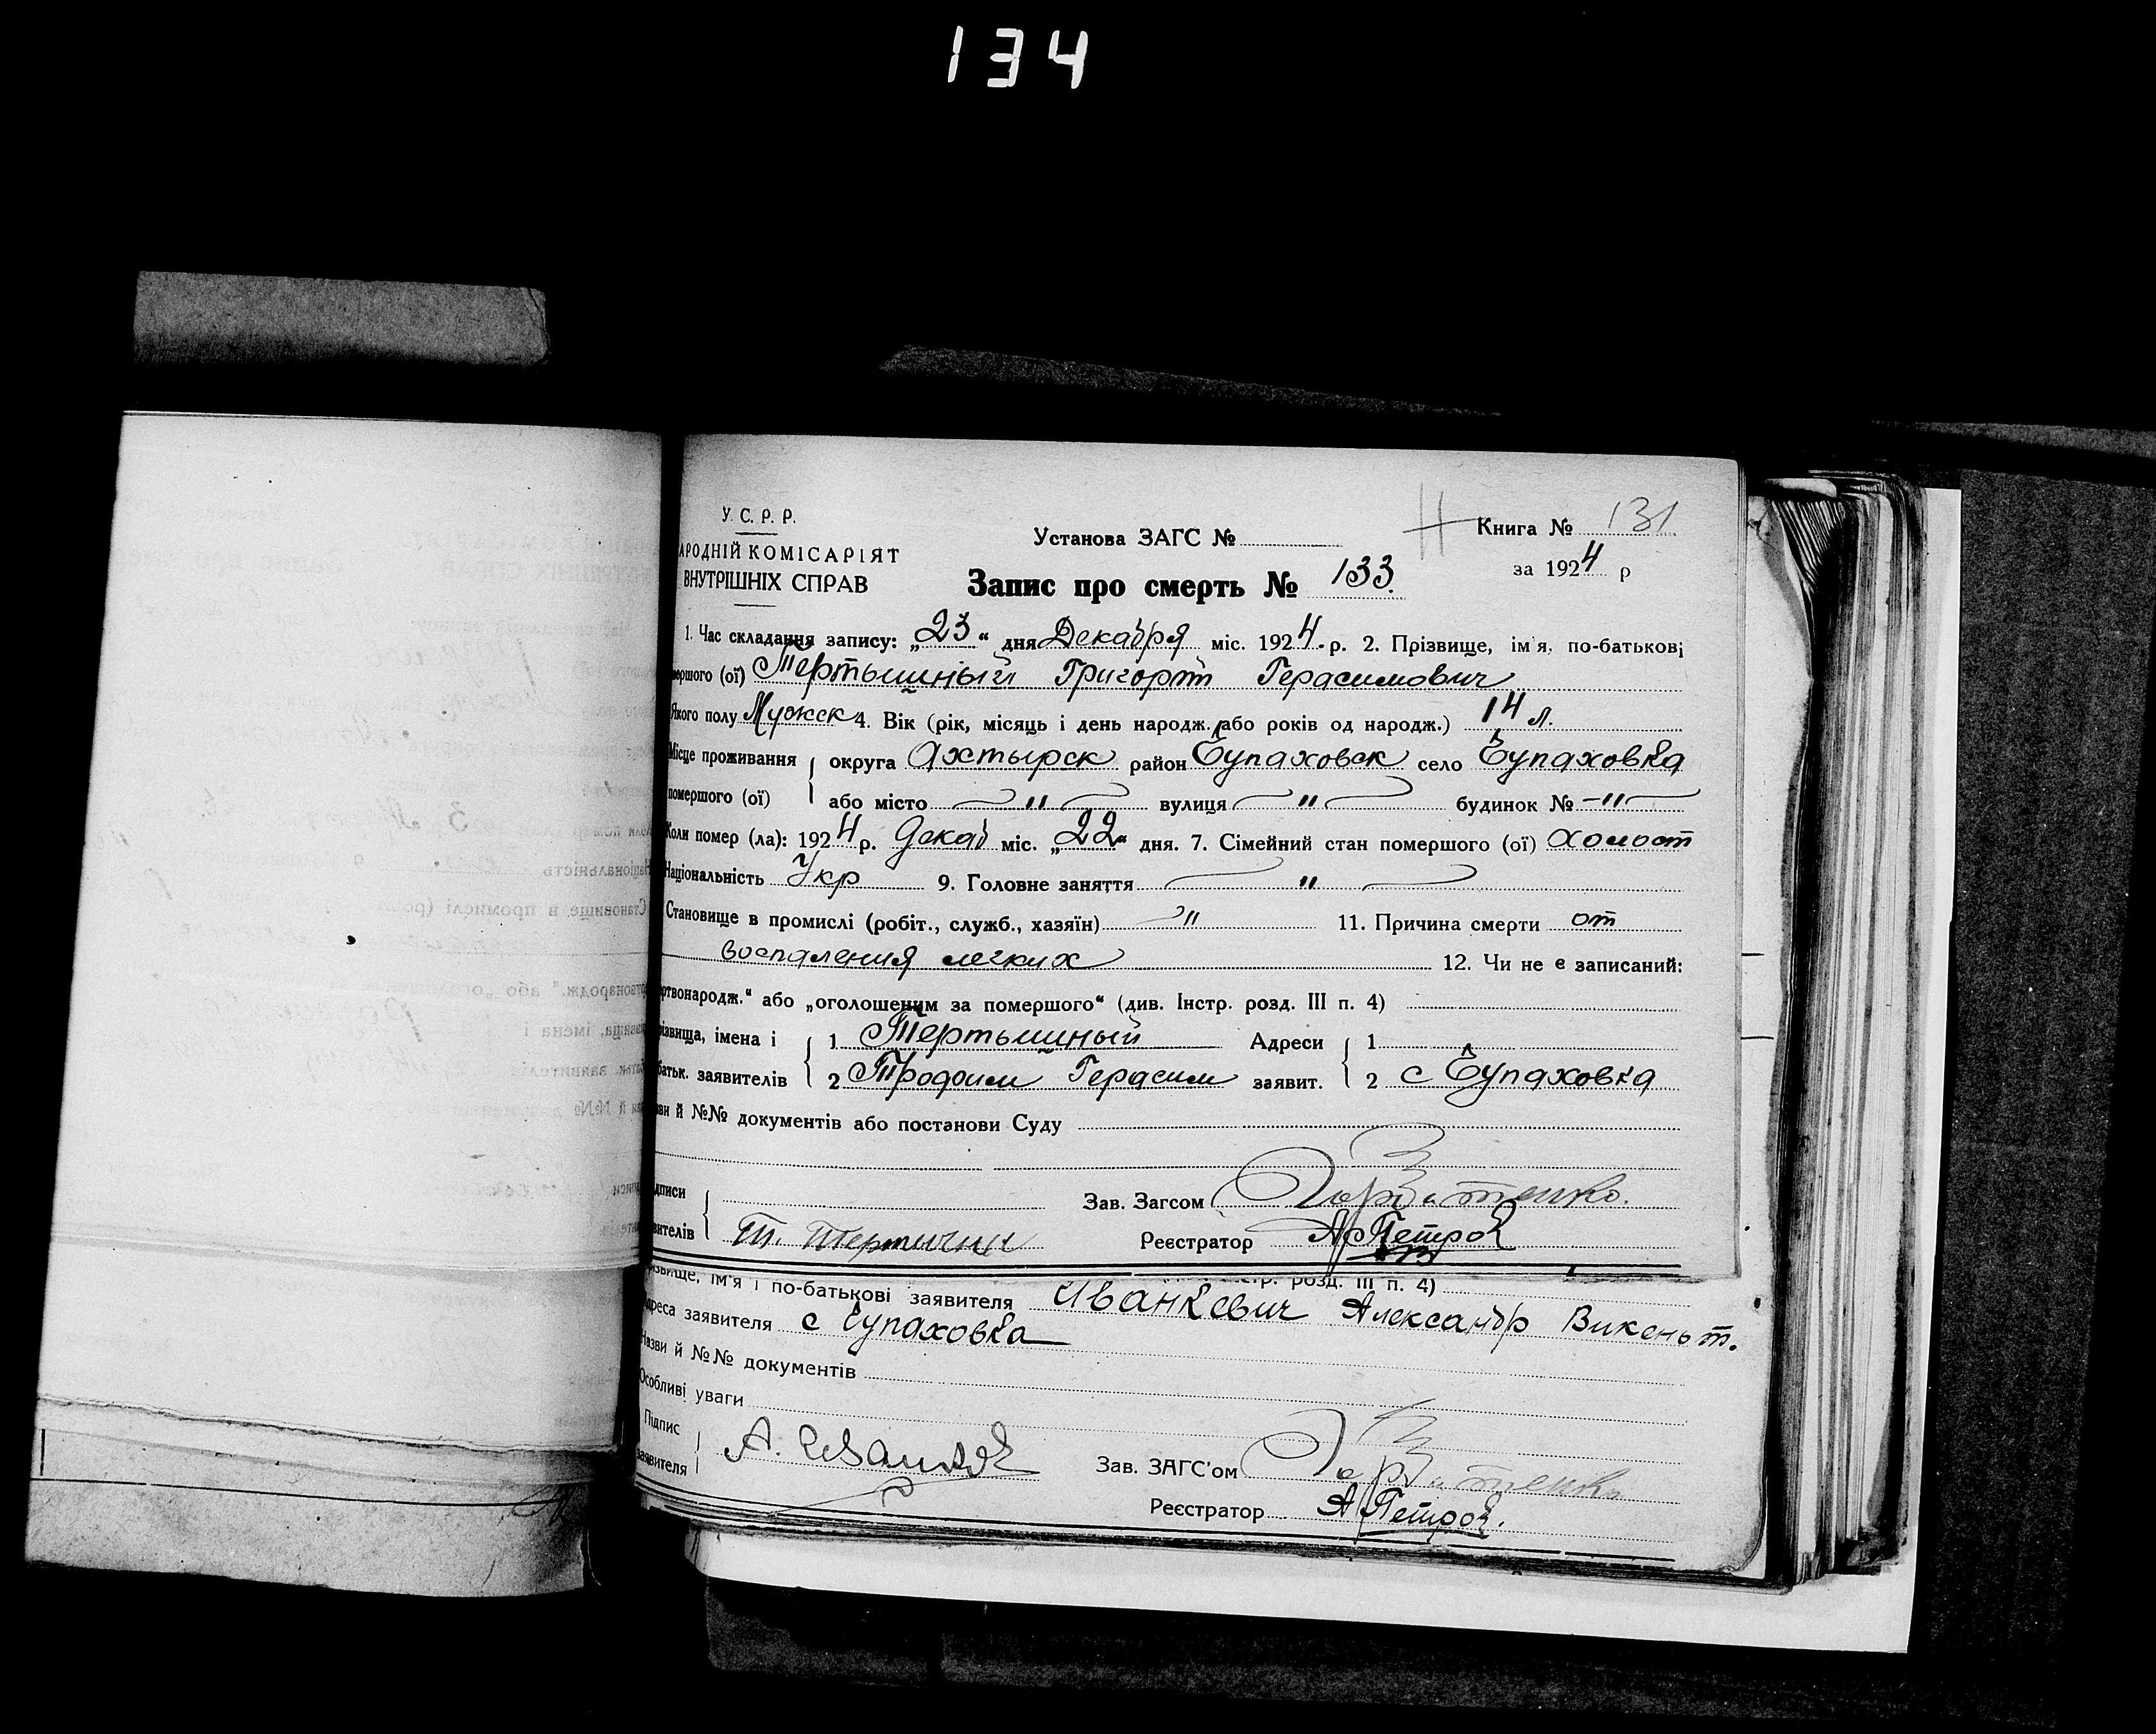 134
У. С. Р. Р.
АРОДНІЙ КОМІСАРІЯТ
ВНУТРІШНІХ СПРАВ
Установа ЗАГС №
Книга № 131
за 1924 р
Запис про смерть № 133.
1. Час складання запису: „23“ дня Декабря міс. 1924 р. 2. Прізвище, ім'я, по-батькові
мершого (ої) Тертышный Григорій Герасимович
Якого полу Мужск 4. Вік (рік, місяць і день народж. або років од народж.) 14 л.
Місце проживання округа Ахтырск район Чупаховск село Чупаховка
помершого (ої) або місто —"— вулиця —"— будинок № —"—
Коли помер (ла): 1924 р. Декаб міс. „22“ дня. 7. Сімейний стан помершого (ої) холост
Національність Укр 9. Головне заняття —"—
Становище в промислі (робіт., служб., хазяїн) —"— 11. Причина смерти от
воспаления легких 12. Чи не є записаний:
ртвонародж.“ або „оголошеним за помершого“ (див. Інстр. розд. III п. 4)
ізвища, імена і 1 Тертышный Адреси 1
батьк. заявителів 2 Герасим заявит. 2 с Чупаховка
ви й №№ документів або постанови Суду
дписи Зав. Загсом
вителів Реєстратор А Петров
р. розд. III п. 4)
ізвище, ім'я і по-батькові заявителя Иванкевич Александр Викеньт.
дреса заявителя с Чупаховка
Назви й №№ документів
Особливі уваги
Підпис
заявителя А. Зав. ЗАГС'ом
Реєстратор А Петров.